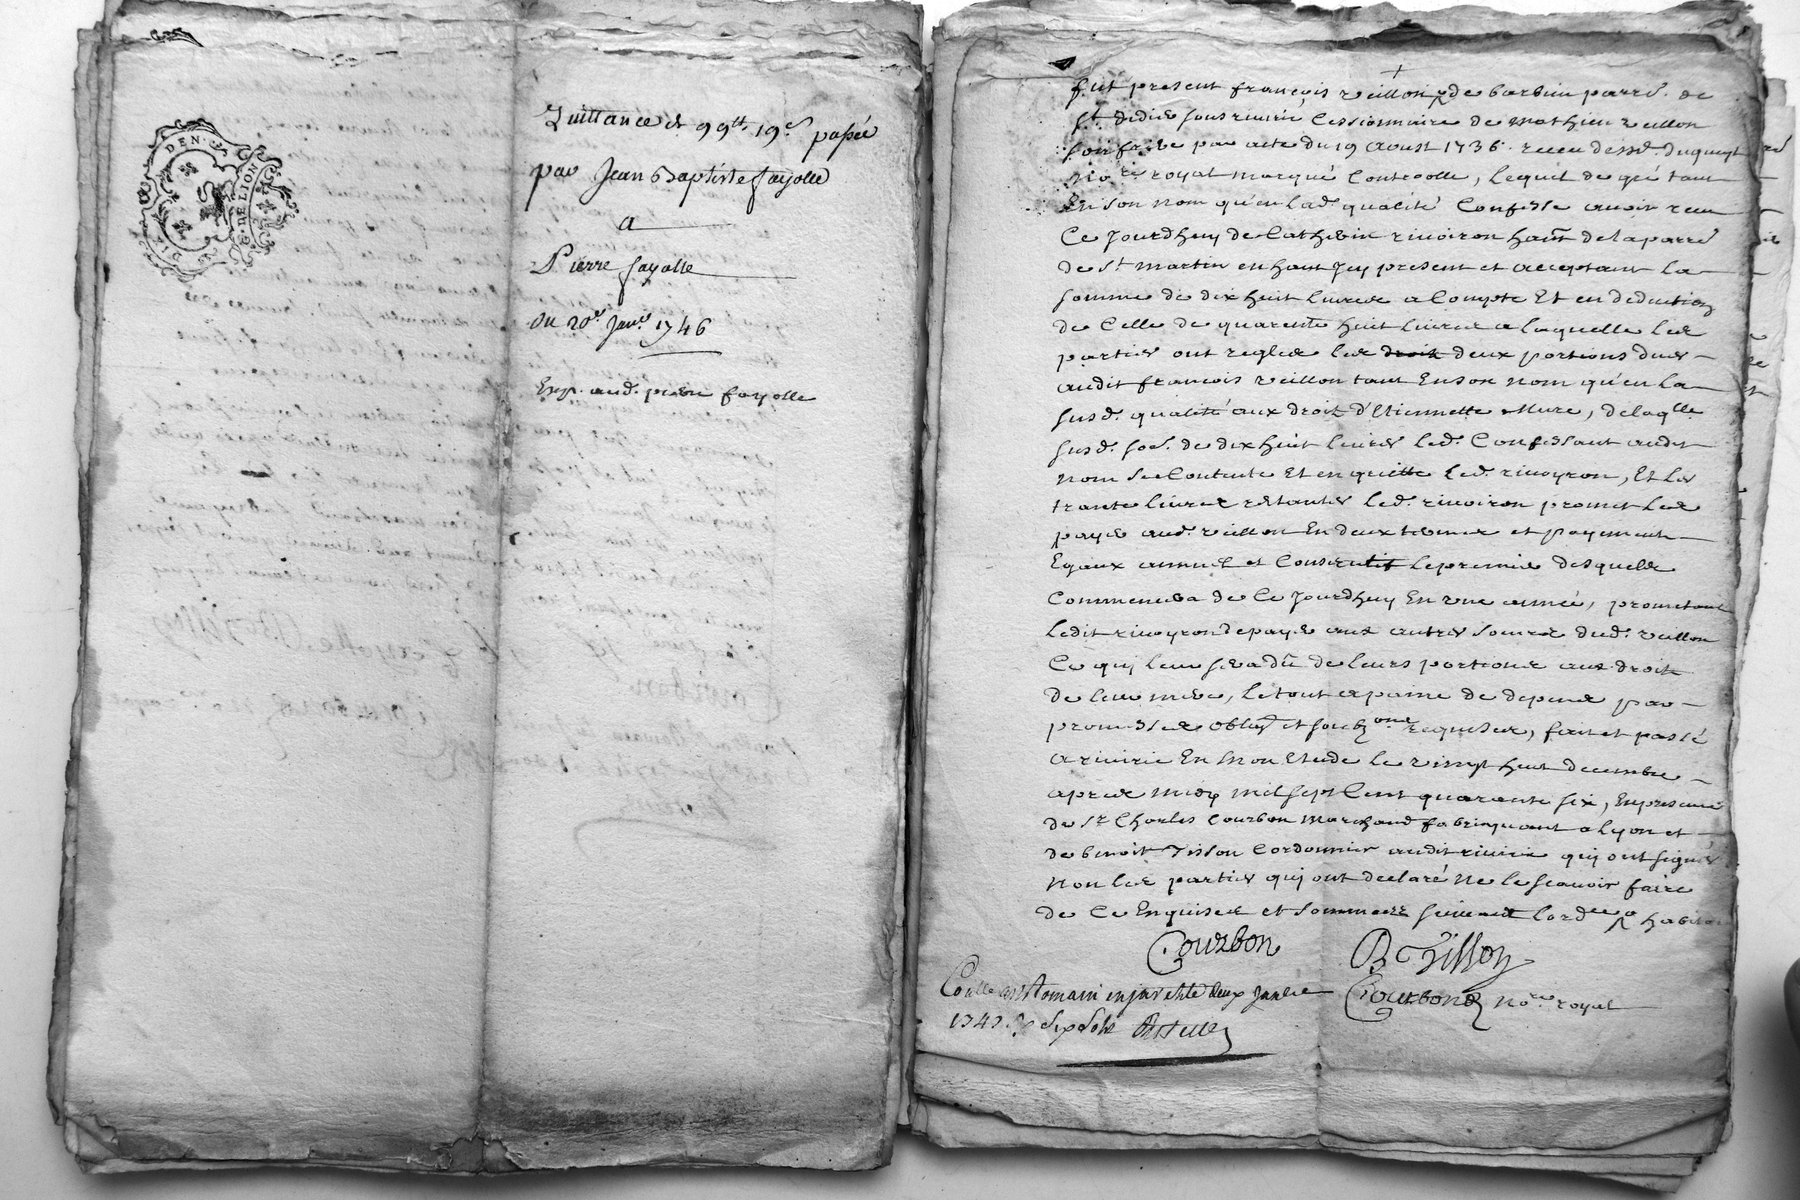 DEN.
G. DE LION
Quittance de 99tt. 19s passée
par Jean Baptiste fayolle
a
Pierre fayolle
Du 20e Janer 1746
Exp. aud. pierre fayolle
fut present françois veillon de barbin parre. de
St didier sous riuirie Cessionnaire de mathieu veillon
son frere par acte du 19 aoust 1736. receu de Me. dugueyt
Nore royal marqué Controolle, lequel de gré tant
En son nom qu'en lad. qualité Confesse auoir receu
Ce Jourdhuy de Catherin riuoiron hant de la parre
de St martin en haut Jcy present et acceptant la
somme de dix huit liures a Compte Et en deduction
de Celle de quarente huit liures a laquelle les
parties ont reglee les droit deux portions dues
audit francois veillon tant En son nom qu'en la
susd. qualité aux droit d'Etiennette Mure, de laqlle
susd. soe. de dix huit liures led. Confessant audit
nom se Contente Et en quitte led. riuoyron, Et les
trante liures restantes led. riuoiron promet les
payer aud. veillon En deux termes et payements
Egaux annuel et Consecutif le premier desquels
Commencera de Ce Jourdhuy En vne année, promettant
ledit riuoyron de payer aux autres soeurs dud. veillon
Ce quj leur sera dû de leurs portions aux droit
de leur mere, le tout a paine de depens par
promesses oblig et soubzons requises, fait et passé
a riuirie En mon Etude le vingt huit decembre
apres midy mil sept Cent quarante six, En presence
de Sr Charles Courbon marchand fabriquant a Lyon et
de benoit Tisson Cordonnier audit riuirie quj ont signés
Non les parties quj ont declaré ne le scauoir faire
de Ce Enquises et sommees suiuant lordce
Courbon B Tisson
Coulle a St Romain en jarest le deux Januier Courbon Nore royal
1747. R. six sols